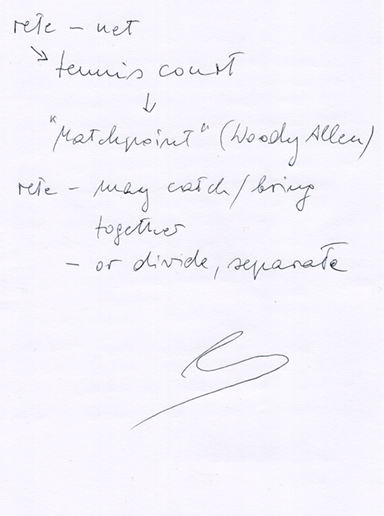 rete – net
↘ tennis court
↓
"Matchpoint" (Woody Allen)
rete – may catch/bring
together
– or divide, separate